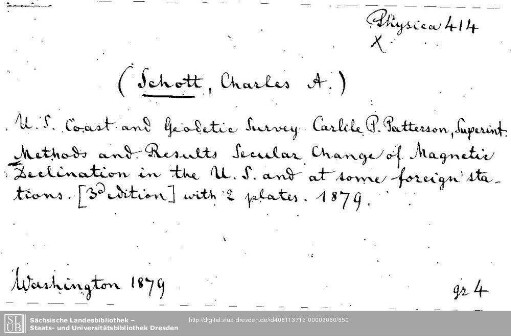 Physica 414
X
(Schott, Charles A.)
U. S. Coast and Geodetic Survey Carlile P. Patterson, Superint.
Methods and Results Secular Change of Magnetic
Declination in the U. S. and at some foreign sta-
tions. [3d edition] with 2 plates. 1879.
Washington 1879
gr 4
SLUB
Sächsische Landesbibliothek –
Staats- und Universitätsbibliothek Dresden